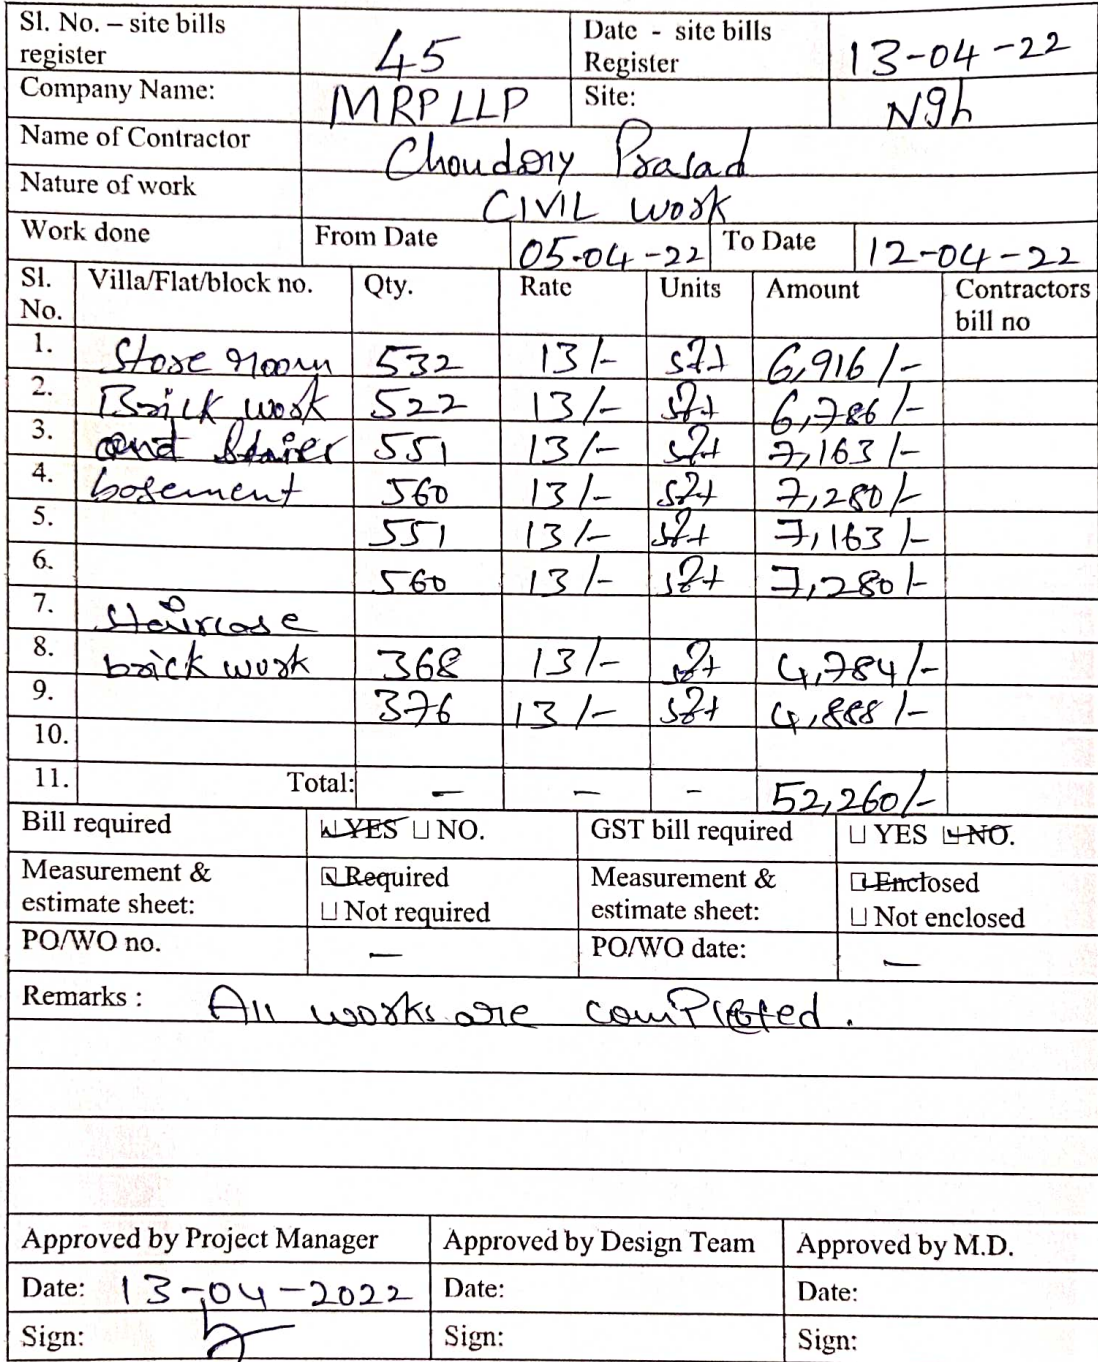 Sl. No. – site bills register 45 Date - site bills Register 13-04-22
Company Name: MRPLLP Site: Ngh
Name of Contractor Choudory Prasad
Nature of work CIVIL work
Work done From Date 05-04-22 To Date 12-04-22
Sl. No. Villa/Flat/block no. Qty. Rate Units Amount Contractors bill no
1. Store room 532 13/- sft 6,916/-
2. Brick work 522 13/- sft 6,786/-
3. and 551 13/- sft 7,163/-
4. bosement 560 13/- sft 7,280/-
5. 551 13/- sft 7,163/-
6. 560 13/- sft 7,280/-
7. Staircase
8. brick work 368 13/- sft 4,784/-
9. 376 13/- sft 4,888/-
10.
11. Total: – – – 52,260/-
Bill required YES NO. GST bill required YES NO.
Measurement & estimate sheet: Required Not required Measurement & estimate sheet: Enclosed Not enclosed
PO/WO no. – PO/WO date: –
Remarks : All works are completed.
Approved by Project Manager Approved by Design Team Approved by M.D.
Date: 13-04-2022 Date: Date:
Sign: Sign: Sign: